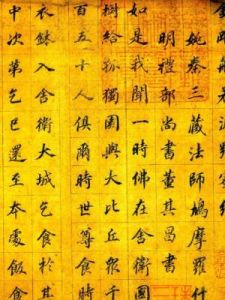 姚秦三藏法師鳩摩羅什
明禮部尚書董其昌書
如是我聞一時佛在舍衛國
樹給孤獨園與大比丘眾千
百五十人俱爾時世尊食時
衣鉢入舍衛大城乞食於其
中次第乞已還至本處飯食